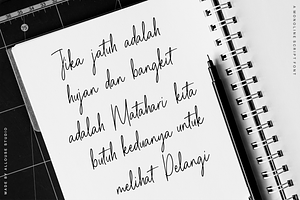 Jika jatuh adalah
hujan dan bangkit
adalah Matahari kita
butuh keduanya untuk
melihat Pelangi
A MONOLINE SCRIPT FONT
MADE BY ALLOUSE STUDIO